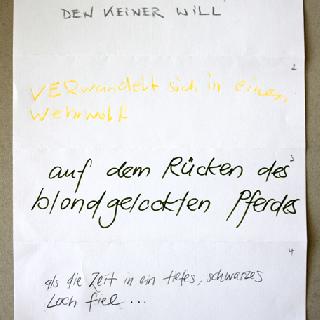 DEN KEINER WILL
2
VERwandelt sich in einen
Wehrwolf
3
auf dem Rücken des
blondgelockten Pferdes
4
als die Zeit in ein tiefes, schwarzes
Loch fiel ...